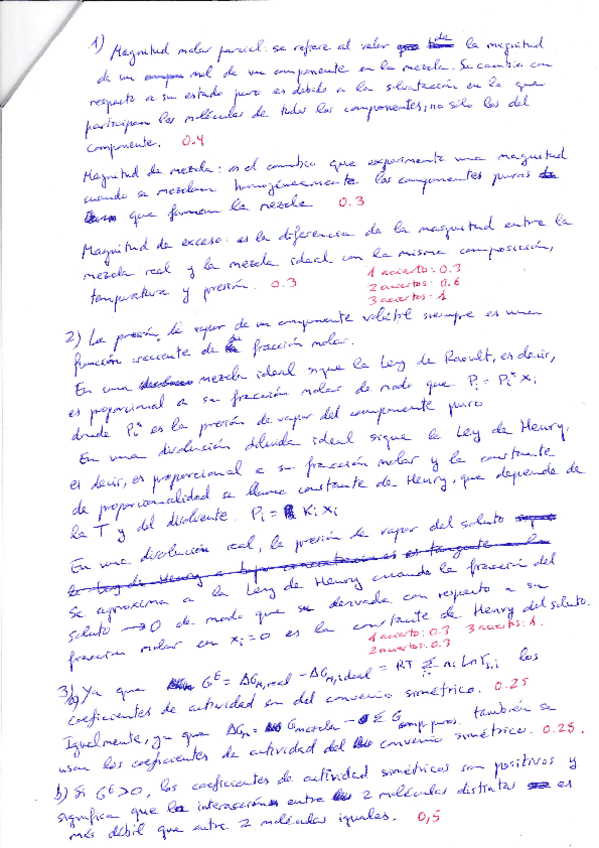 1) Magnitud molar parcial: se refiere al valor de la magnitud
de un mol de un componente en la mezcla. Su cambio con
respecto a su estado puro es debido a la solvatación en la que
participan las moléculas de todos los componentes, no sólo las del
componente. 0.4
Magnitud de mezcla: es el cambio que experimenta una magnitud
cuando se mezclan homogéneamente los componentes puros
que forman la mezcla 0.3
Magnitud de exceso: es la diferencia de la magnitud entre la
mezcla real y la mezcla ideal con la misma composición,
temperatura y presión. 0.3
1 acierto: 0.3
2 aciertos: 0.6
3 aciertos: 1
2) La presión de vapor de un componente volátil siempre es una
función creciente de su fracción molar.
En una mezcla ideal sigue la Ley de Raoult, es decir,
es proporcional a su fracción molar de modo que Pi = Pi* xi
donde Pi* es la presión de vapor del componente puro
En una disolución diluida ideal sigue la Ley de Henry,
es decir, es proporcional a su fracción molar y la constante
de proporcionalidad se llama constante de Henry, que depende de
la T y del disolvente. Pi = Ki xi
En una disolución real, la presión de vapor del soluto
se aproxima a la Ley de Henry cuando la fracción del
soluto → 0 de modo que su derivada con respecto a su
fracción molar en xi = 0 es la constante de Henry del soluto.
1 acierto: 0.3 3 aciertos: 1.
2 aciertos: 0.3
3) a) Ya que G^E = ΔG_M,real - ΔG_M,ideal = RT Σ ni Ln γ_s,i los
coeficientes de actividad son del convenio simétrico. 0.25
Igualmente, ya que ΔG_M = G mezcla - Σ G comp. puros también se
usan los coeficientes de actividad del convenio simétrico. 0.25.
b) Si G^E > 0, los coeficientes de actividad simétricos son positivos y
significa que la interacción entre 2 moléculas distintas es
más débil que entre 2 moléculas iguales. 0,5